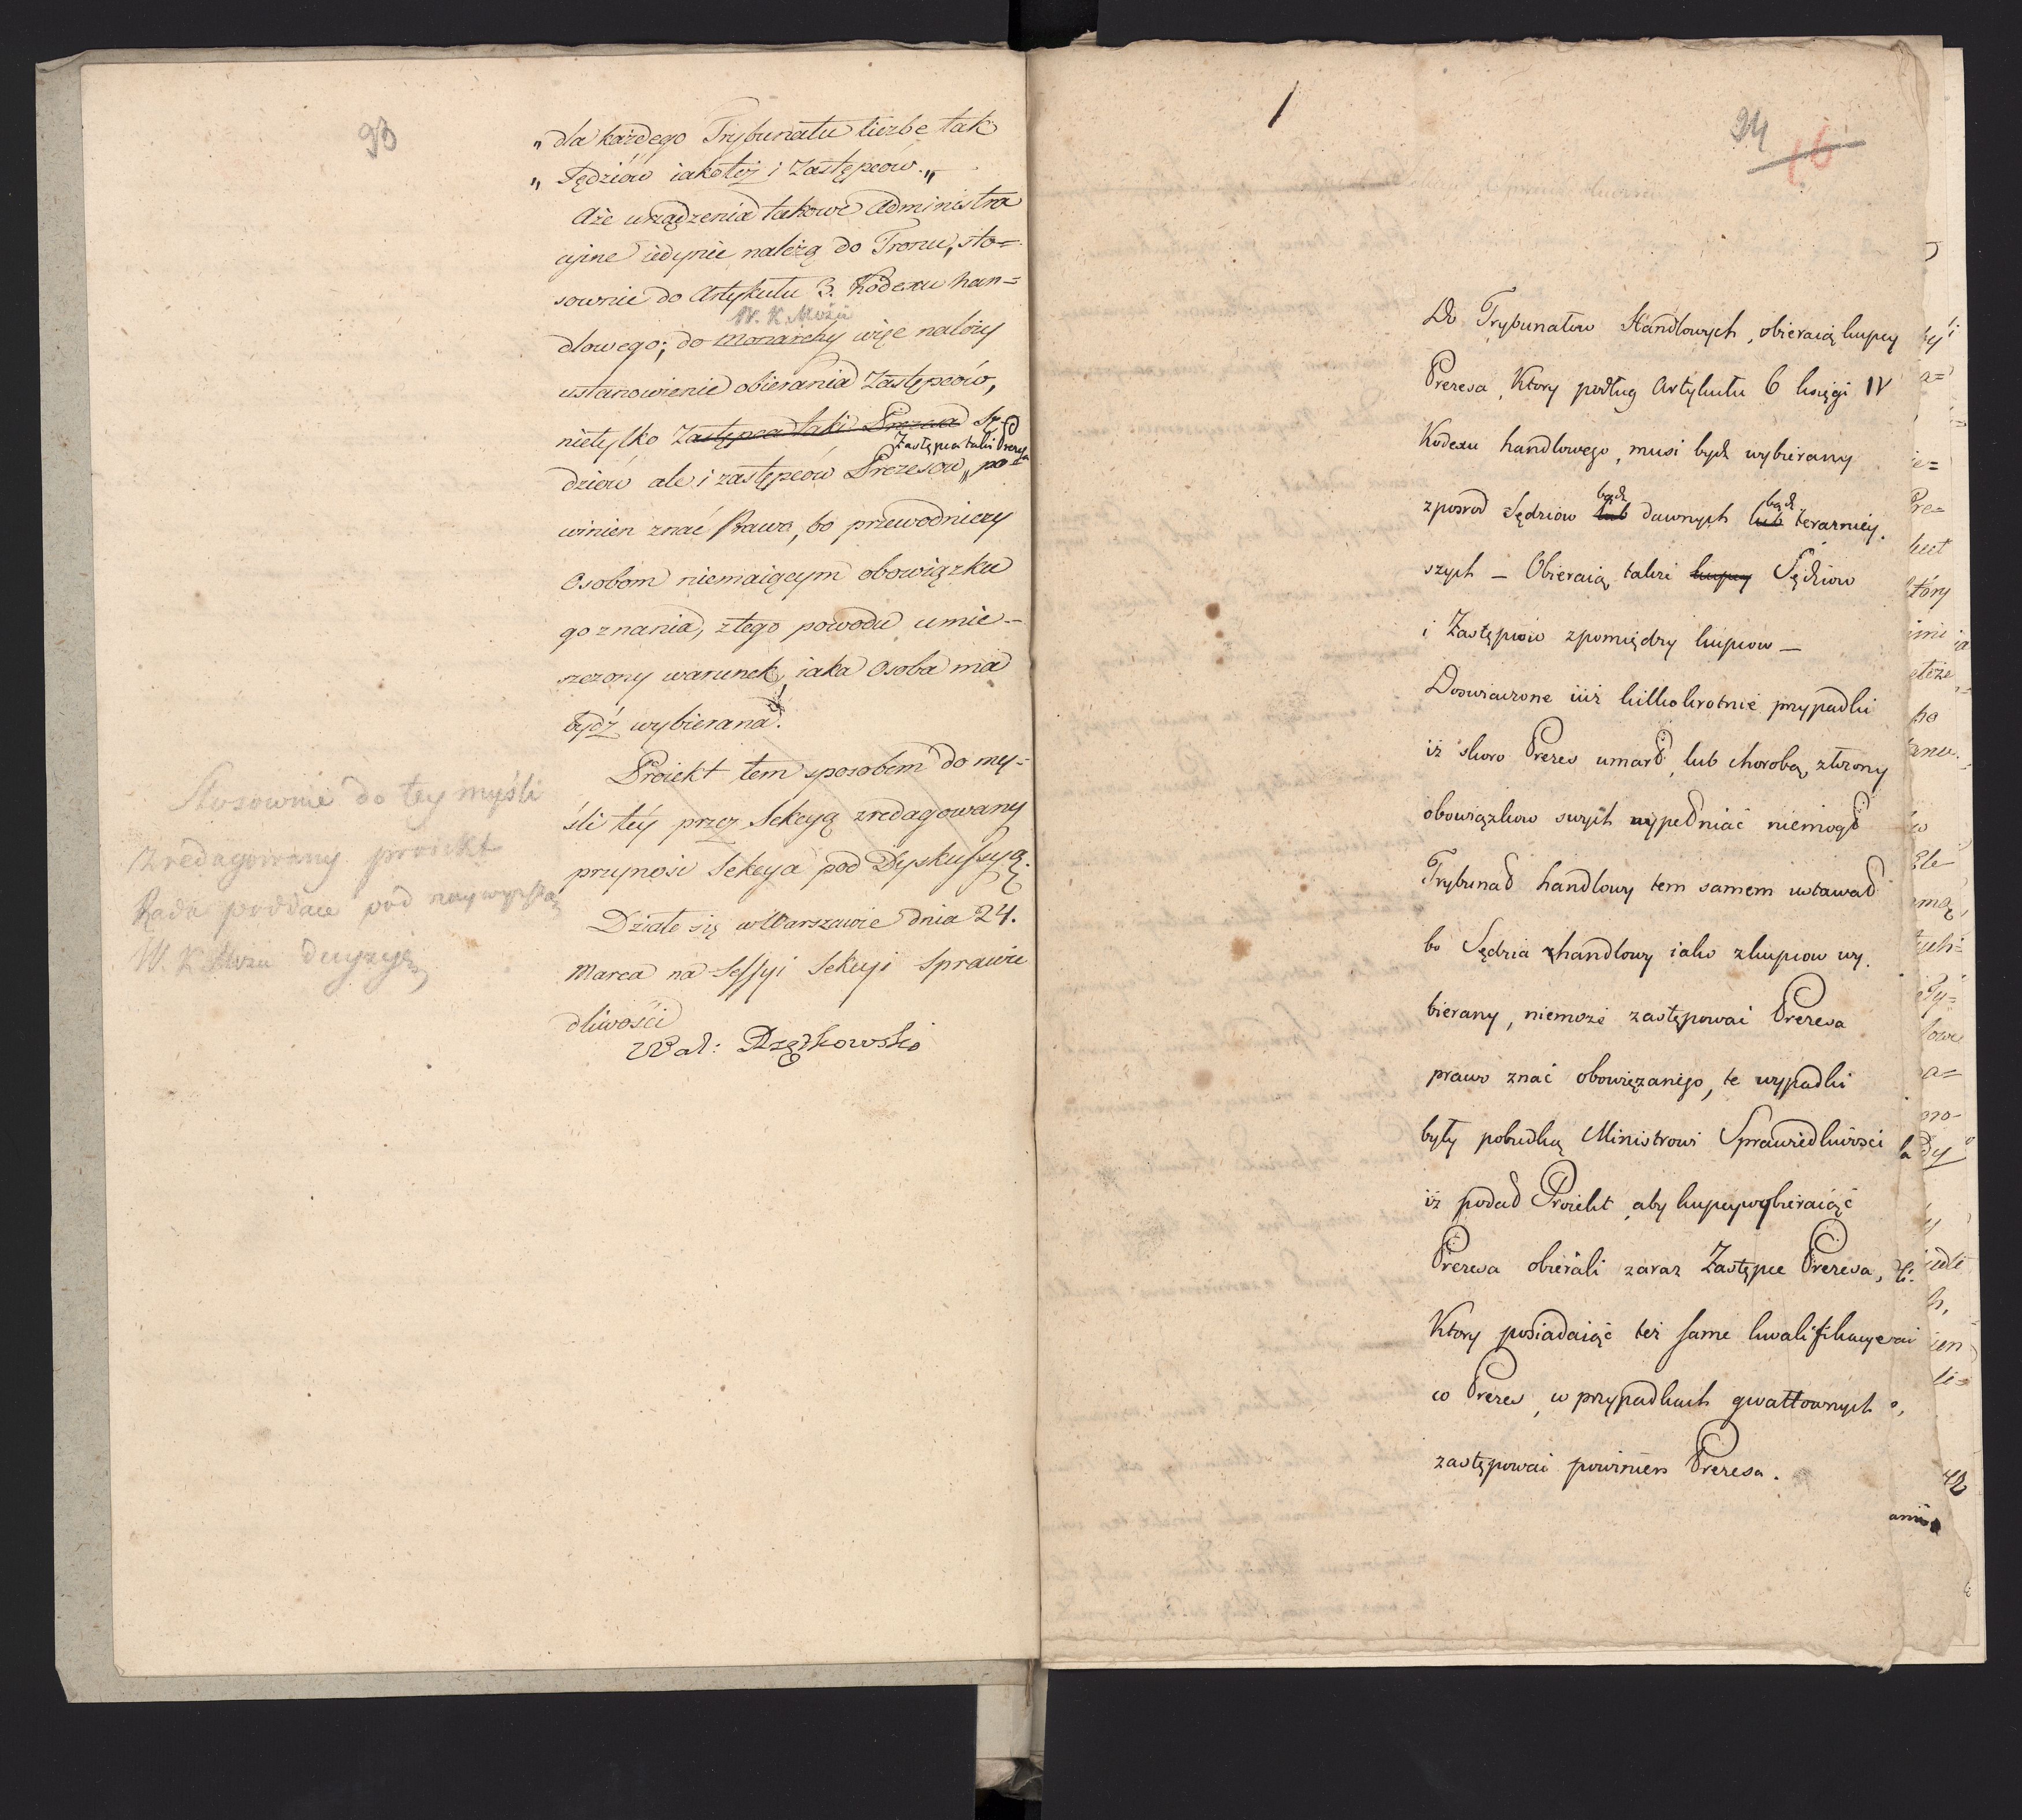 93
„dla każdego Trybunału liczbę tak
„Sędziów iakoteż i Zastępców.„
Aże urządzenia takowe Administra
cyine iedynie należą do Tronu, sto=
sownie do Artykułu 3. Kodexu han=
W. K. Mości
dlowego; do Monarchy więc należy
ustanowienie obierania Zastępców,
nietylko Zastępca taki Prezesa Sę=
Zastępca taki Prezesa
dziów ale i zastępców Prezesów, po=
winien znać Prawo, bo przewodniczy
Osobom niemaiącym obowiązku
go znania, z tego powodu umie=
szczony warunek, iaka Osoba ma
bydź wybierana.
Proiekt tem sposobem do my=
śli téy przez Sekcyą zredagowany
przynosi Sekcya pod Dyskussyą.
Działo się w Warszawie dnia 24.
Marca na Sessyi Sekcyi Sprawie
dliwości
Wal: Rzętkowski
Stosownie do tey myśli
zredagowany proiekt
Rada poddaie pod naywyższą
W. K. Mości decyzyę
1
94
16
Do Trybunałow Handlowych, obieraią kupcy
Prezesa, Ktory podług Artykułu 6 księgi IV
Kodexu handlowego, musi bydz wybierany
bądz bądz
zposrod Sędziow lub dawnych lub teraznięy.
szych – Obieraią także kupcy Sędziow
i Zastępcow zpomiędzy kupcow –
Doswiadczone iuż kilkokrotnie przypadki
iż skoro Prezes umarł, lub chorobą złożony
obowiązkow swych wypełniać niemogł
Trybunał handlowy tem samem ustawał
bo Sędzia handlowy iako zkupcow wy.
bierany, niemoże zastępować Prezesa
prawo znać obowięzanego, te wypadki
były pobudką Ministrowi Sprawiedliwości
iż podał Proiekt, aby kupcy wybieraiąc
Prezesa obierali zaraz Zastępce Prezesa,
Ktory posiadaiąc też same kwalifikacye
co Prezes, w przypadkach gwałtownych
zastępować powinien Prezesa.